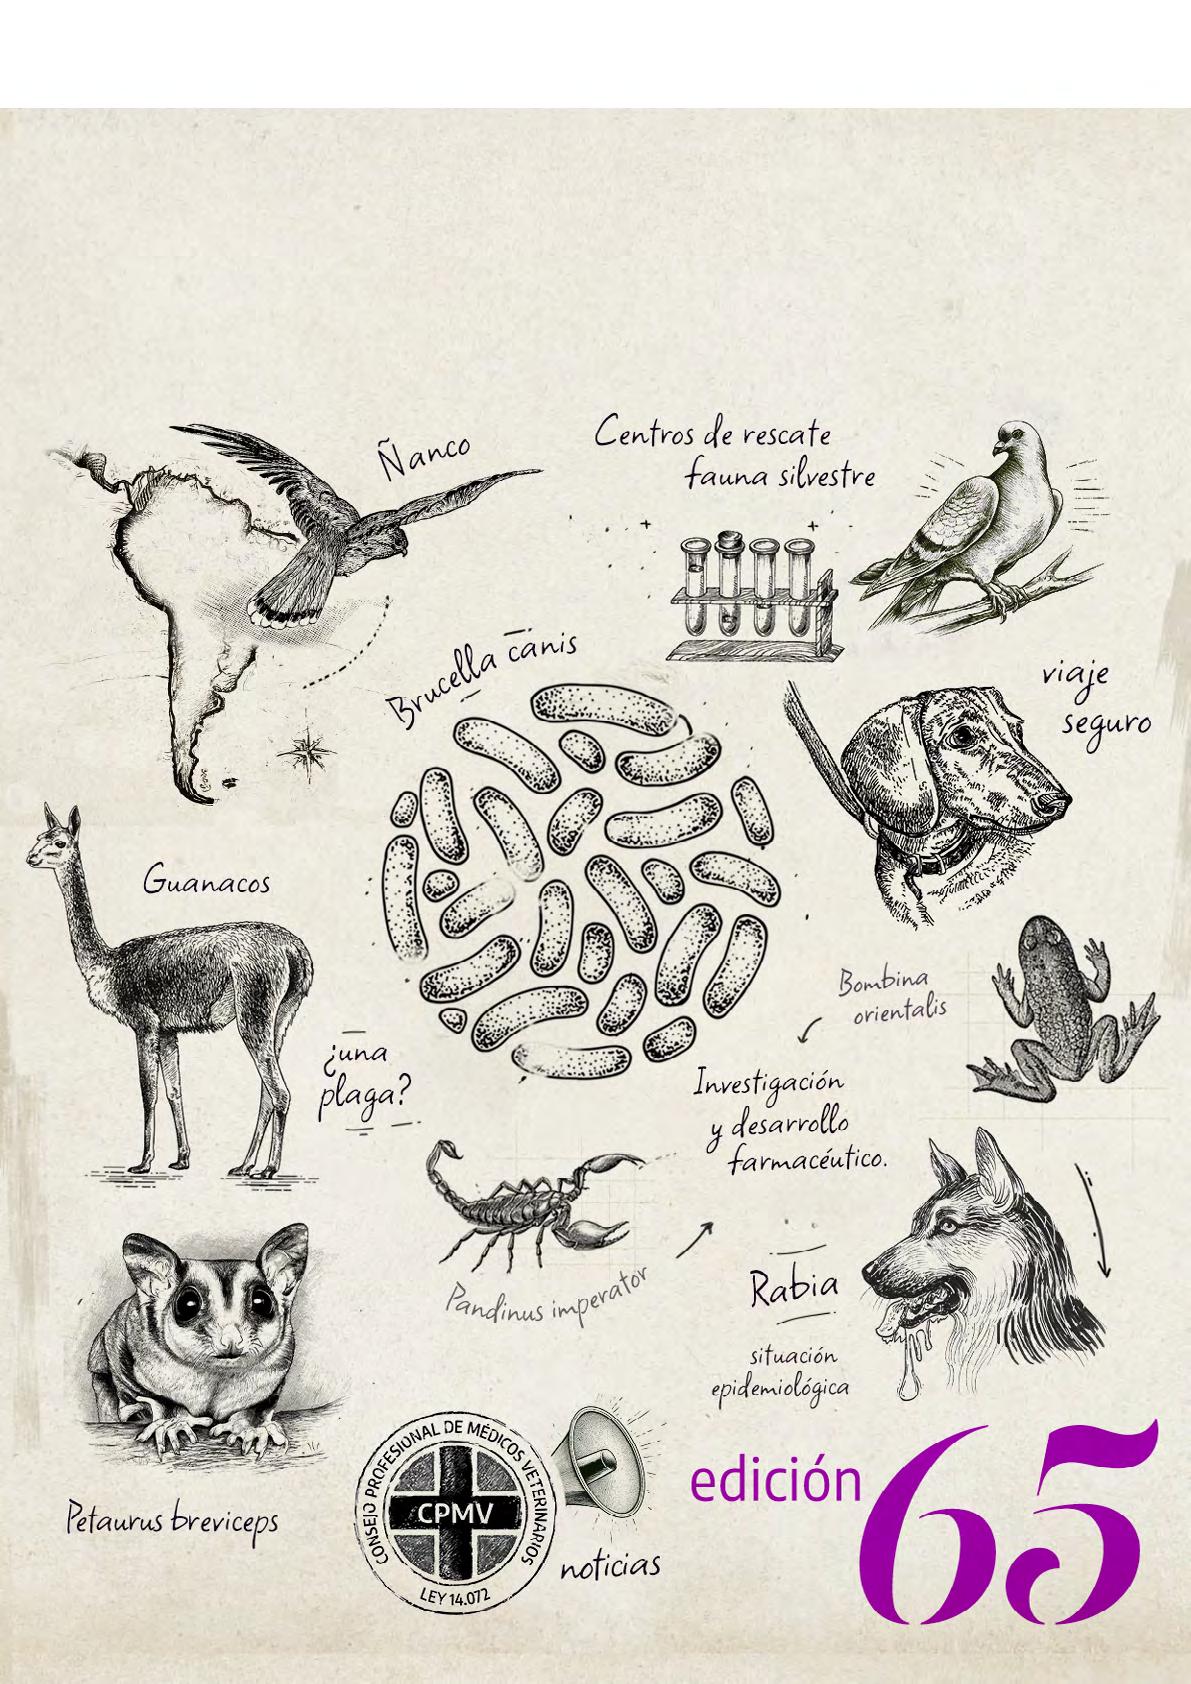 Ñanco
Centros de rescate
fauna silvestre
Brucella canis
viaje
seguro
Guanacos
¿una
plaga?
Bombina
orientalis
Investigación
y desarrollo
farmacéutico.
Pandinus imperator
Rabia
situación
epidemiológica
Petaurus breviceps
CONSEJO PROFESIONAL DE MÉDICOS VETERINARIOS
CPMV
LEY 14.072
noticias
edición 65